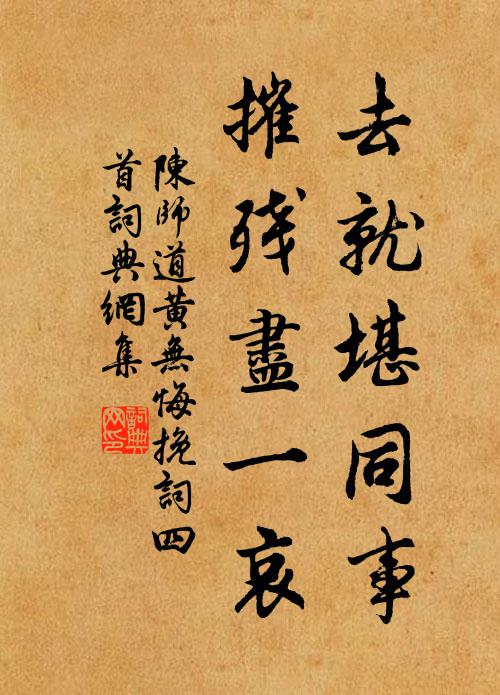 去就堪同事
摧残盡一哀
陳師道黄無悔挽詞四
首詞典網集
詞典
网印